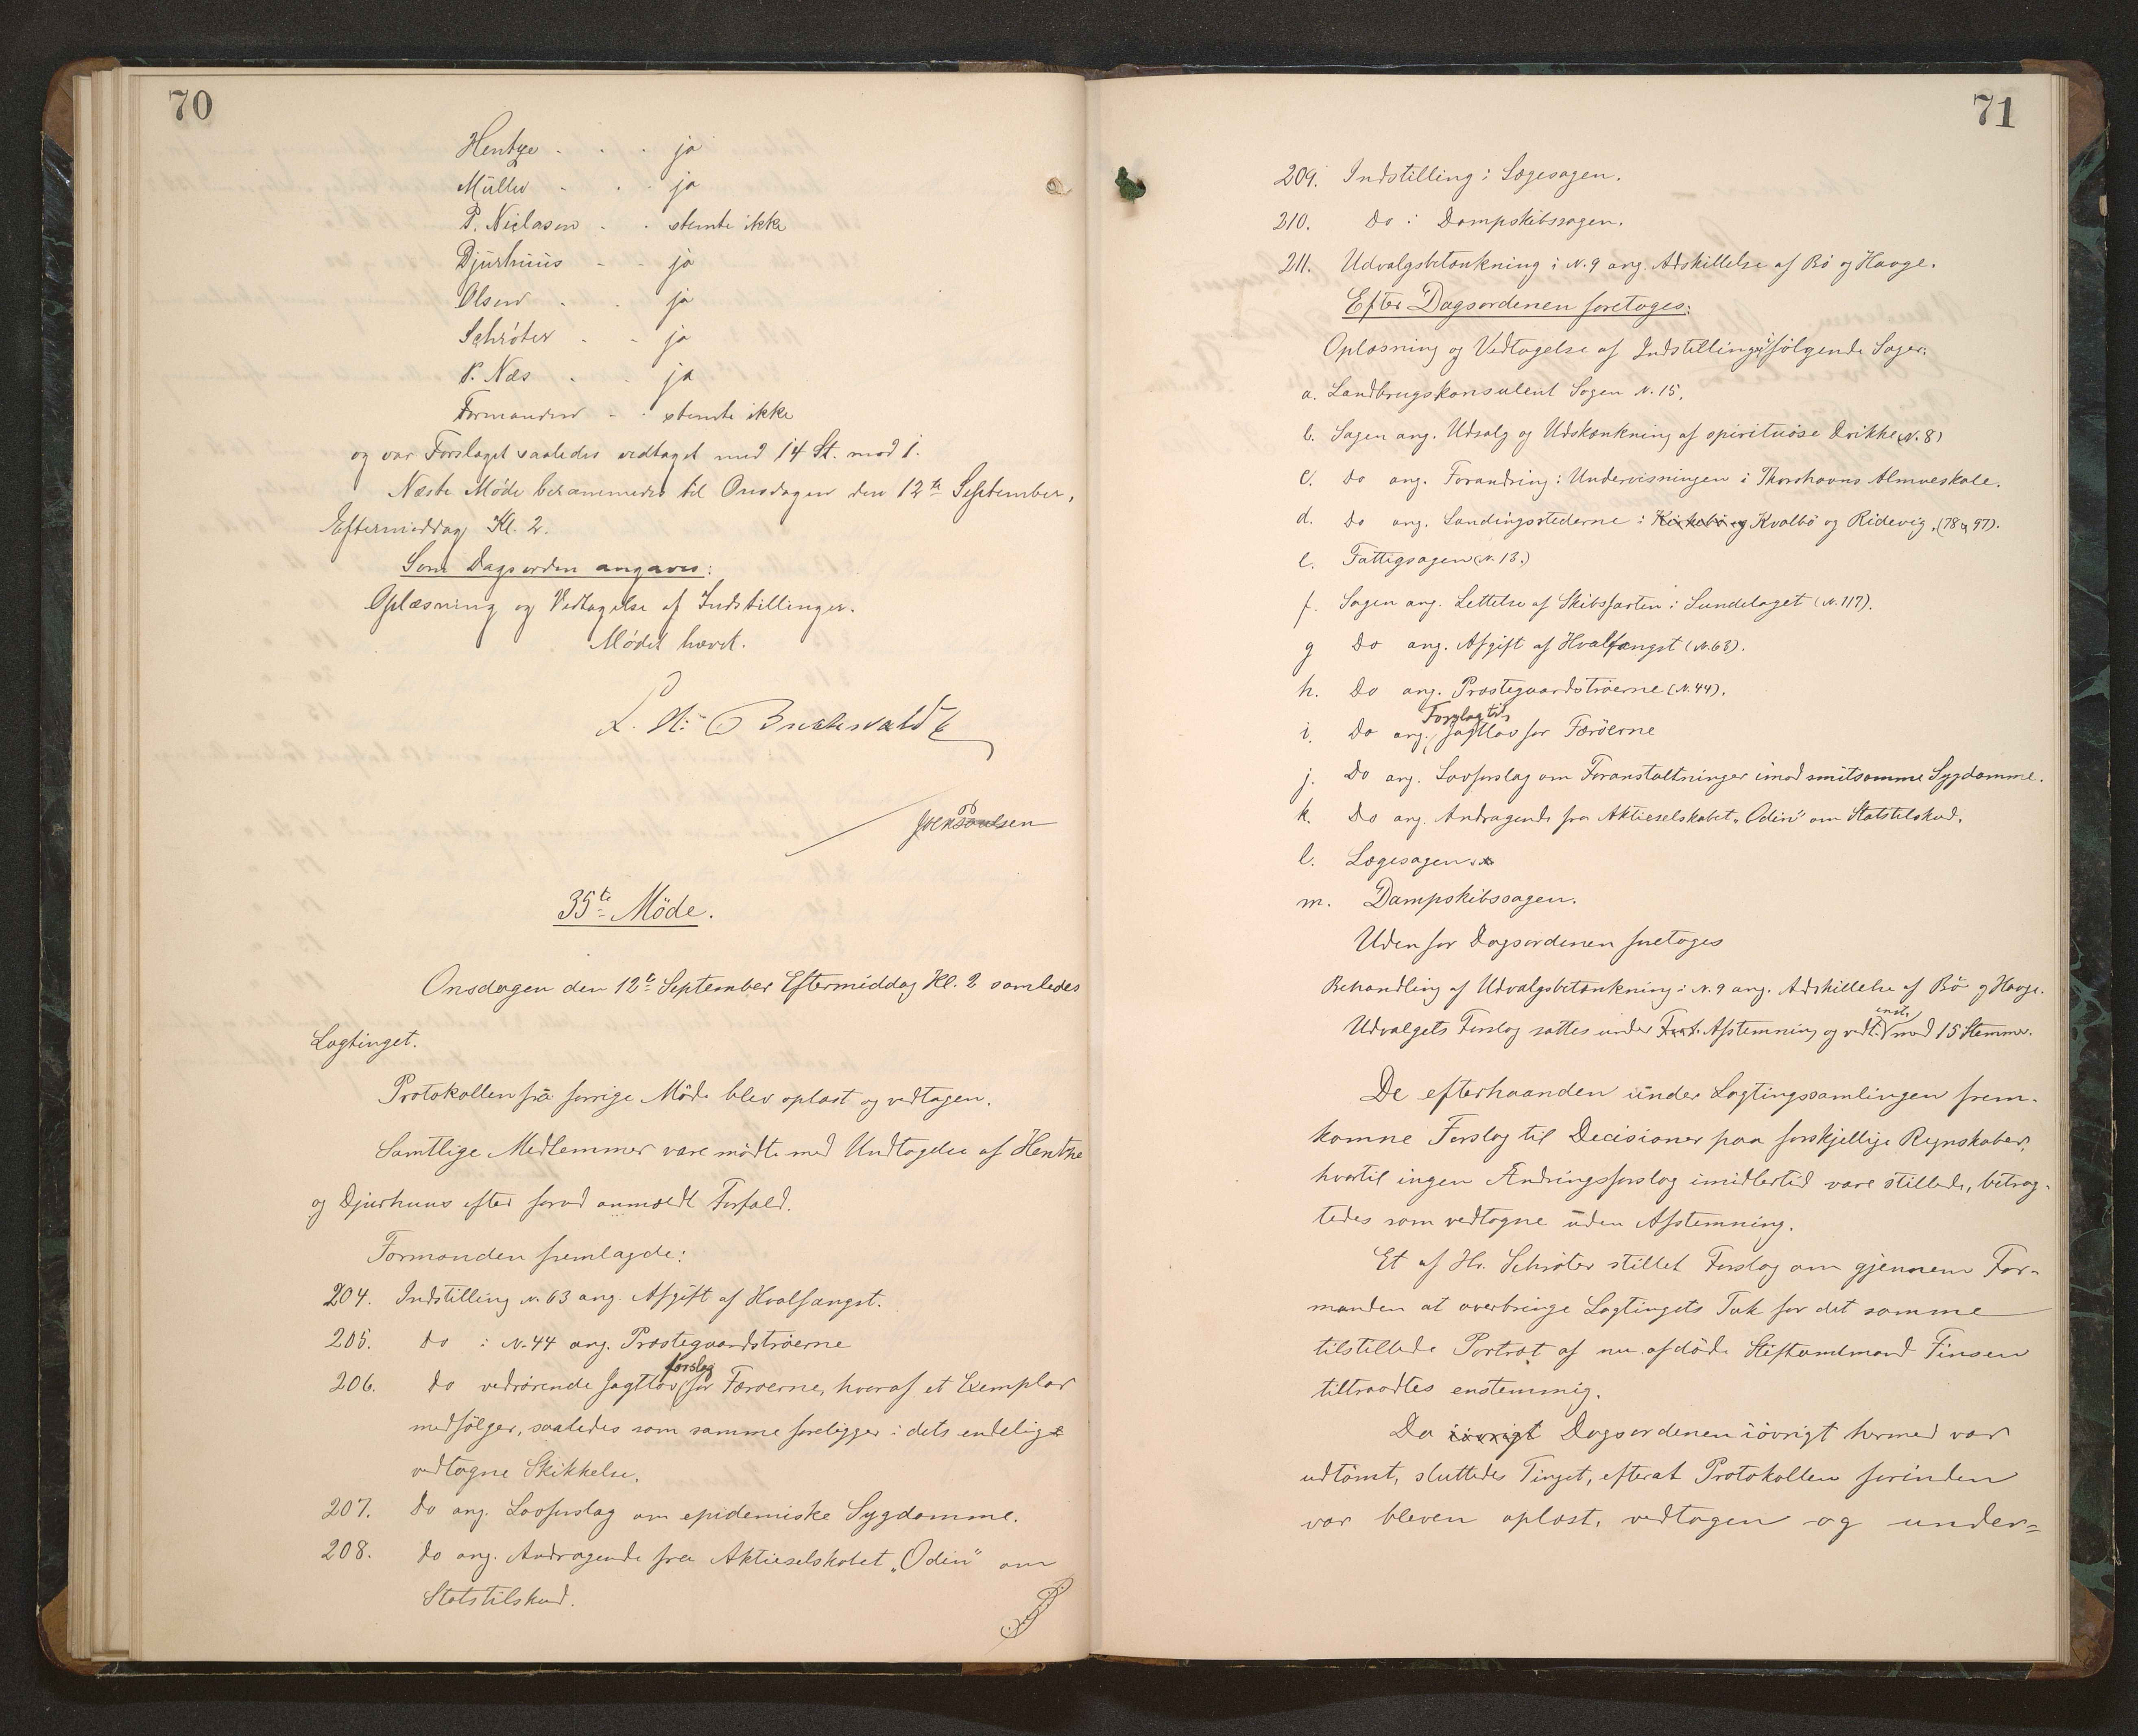 70
Hentze - . . ja
Müller - . . ja
P. Niclasen - . stemte ikke
Djurhuus - - ja
Olsen . . ja
Schröter - - ja
P. Næs . . ja
Formanden - . stemte ikke
og var Forslaget saaledes vedtaget med 14 St. mod 1.
Næste Møde berammedes til Onsdagen den 12te September,
Eftermiddag Kl. 2.
Som Dagsorden angaves:
Oplæsning og Vedtagelse af Indstillinger.
Mødet hævet.
L. H. Buchwaldt
Joen Poulsen
35te Møde.
Onsdagen den 12te September Eftermiddag Kl. 2 samledes
Lagtinget.
Protokollen fra forrige Möde blev oplæst og vedtagen.
Samtlige Medlemmer vare mödte med Undtagelse af Hentze
og Djurhuus efter forud anmeldt Forfald.
Formanden fremlagde:
204. Indstilling N. 63 ang. Afgift af Hvalfangst.
205. Do i N. 44 ang. Præstegaardströerne
206. Do vedrörende Jagtlov forslag for Færöerne, hvoraf et Exemplar
medfölger, saaledes som samme foreligger i dets endelige
vedtagne Skikkelse.
207. Do ang. Lovforslag om epidemiske Sygdomme.
208. Do ang. Andragende fra Aktieselskabet „Odin" om
Statstilskud.
71
209. Indstilling i Lægesagen.
210. Do i Dampskibssagen.
211. Udvalgsbetænkning i N. 9 ang. Adskillelse af Bö og Hauge.
Efter Dagsordenen foretoges:
Oplæsning og Vedtagelse af Indstilling i følgende Sager:
a. Landbrugskonsulent Sagen N. 15.
b. Sagen ang. Udsalg og Udskænkning af spirituöse Drikke (N. 8)
c. Do ang. Forandring i Undervisningen i Thorshavns Almueskole.
d. Do ang. Landingsstederne i Kirkebö og Kvalbö og Ridevig. (78 & 97).
e. Fattigsagen (N. 13.)
f. Sagen ang. Lettelse af Skibsfarten i Sundelaget (N. 117).
g Do ang. Afgift af Hvalfangst (N. 63).
h. Do ang. Præstegaardströerne (N. 44).
i. Do ang. Forslag til Jagtlov for Færöerne
j. Do ang. Lovforslag om Foranstaltninger imod smitsomme Sygdomme.
k. Do ang. Andragende fra Aktieselskabet „Odin" om Statstilskud.
l. Lægesagen.
m. Dampskibssagen.
Uden for Dagsordenen foretoges
Behandling af Udvalgsbetænkning i N. 9 ang. Adskillelse af Bö og Hauge.
Udvalgets Forslag sattes under Afstemning og vedt. enst. med 15 Stemmer.
De efterhaanden under Lagtingssamlingen frem-
komne Forslag til Decisioner paa forskjellige Regnskaber,
hvortil ingen Ændringsforslag imidlertid vare stillede, betrag-
tedes som vedtagne uden Afstemning.
Et af Hr. Schröter stillet Forslag om gjennem For-
manden at overbringe Lagtingets Tak for det samme
tilstillede Portræt af nu afdöde Stiftamtmand Finsen
tiltraadtes enstemmig.
Da iövrigt Dagsordenen iövrigt hermed var
udtömt, sluttedes Tinget, efterat Protokollen forinden
var bleven oplæst, vedtagen og under=